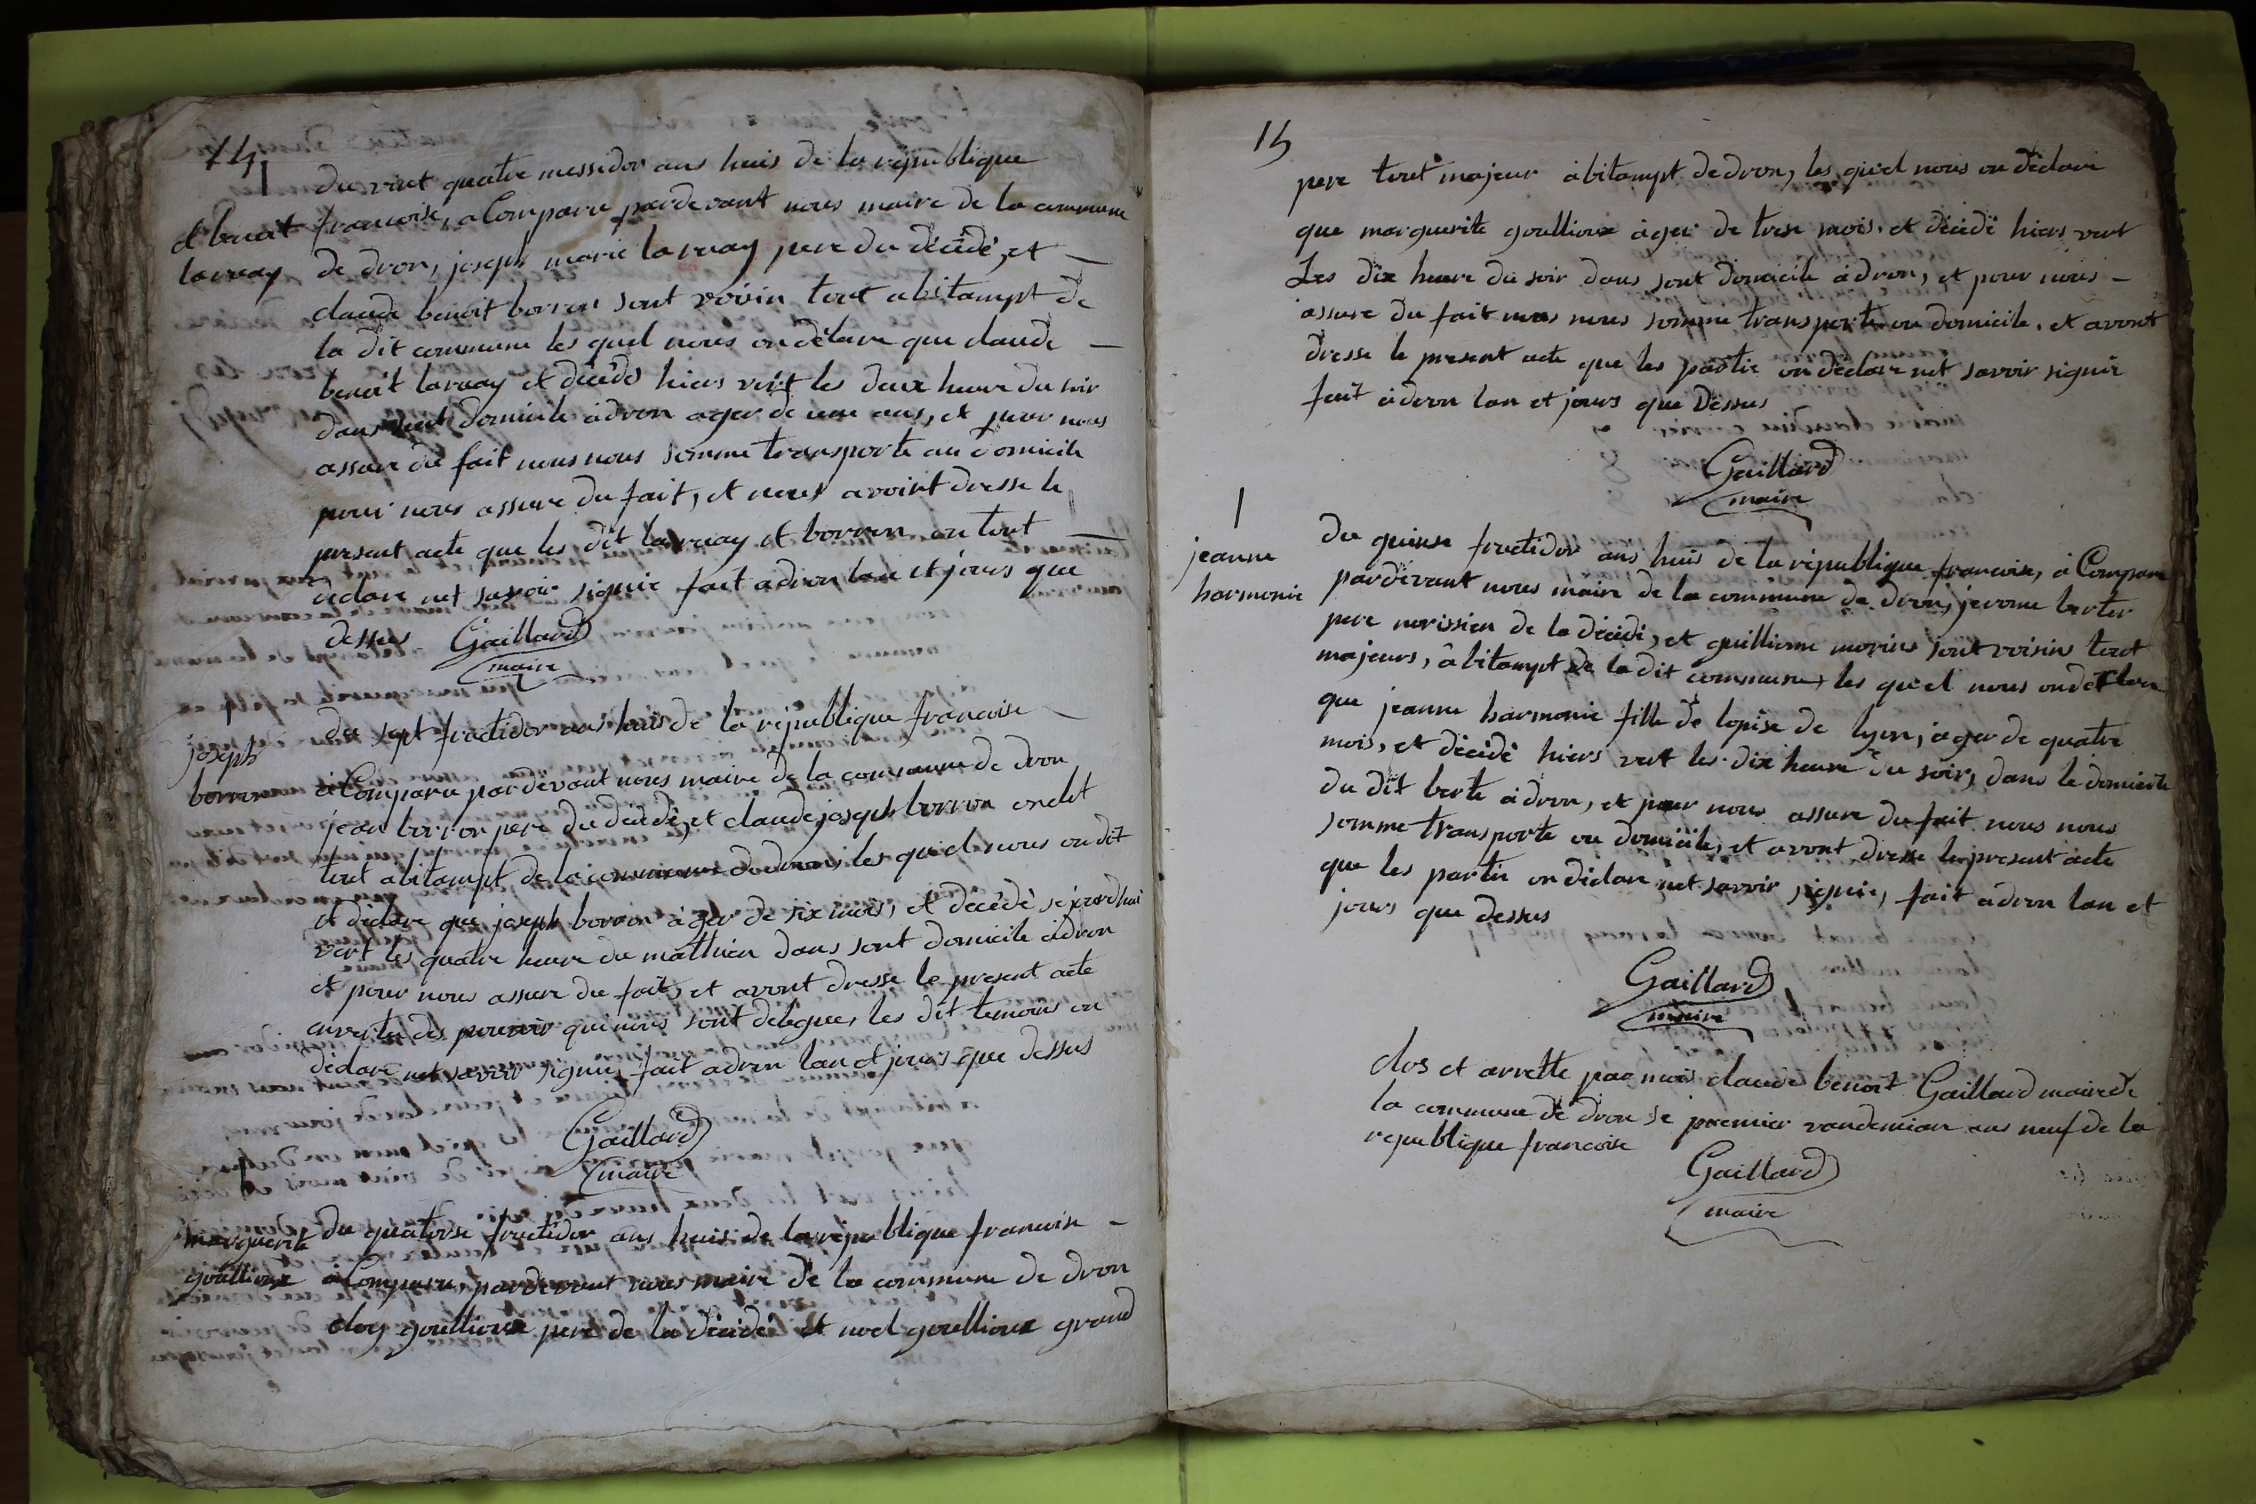 14
du vint quatre messidor ans huis de la republique
cl benoit francoise, a Comparu pardevant nous maire de la commune
larvay de dron, joseph marie larvay pere du décédé, et
claude benoit borron sont voisin tout abitampt de
la dit commune les quel nous on déclare que claude
benoit larvay et décédé hiers vert les deux heure du soir
dans sont domicile a dron ager de une ans, et pour nous
assure du fait nous nous somme transporte au domicile
pour nous assure du fait, et nous avoint dresse le
present acte que les dit larvay et borron on tout
declare net savoir signie fait a dron lan et jours que
dessus Gaillard
maire
joseph
borron
du sept fructidor ans huis de la république francoise
à Comparu pardevant nous maire de la commune de dron
jean borron pere du décédé, et claude joseph borron
tout abitampt de la commune de dron les quel nous on dit
et déclare que joseph borron àger de six mois, et décédé
vert les quatre heure du mathien dans sont domicile à dron
et pour nous assure du fait, et avont dresse le present acte
en vertu des pouvoir qui nous sont delegue, les dit temoins on
déclare net savoir signie, fait a dron lan et jours que dessus
Gaillard
maire
marguerite
goullioux
du quatorse fructidor ans huis de la republique francoise
à Comparu, pardevant nous maire de la commune de dron
cloy goullioux pere de la décédé et noel goullioux grand
15
pere tout majeur àbitampt de dron, les quel nous on déclare
que marguerite goullioux àger de trese mois, et décédé hiers vert
Les dix heure du soir dans sont domicile à dron, et pour nous
assure du fait nous nous somme transporte au domicile, et avont
dresse le present acte que les partie on déclare net savoir signie
fait à dron lan et jours que Dessus
Gaillard
maire
jeanne
harmonie
du quinse fructidor ans huis de la république francoise, à Comparu
pardevant nous maire de la commune de dron, jerome berter
pere norissien de la décédé, et guillieme morin sont voisin tout
majeurs, àbitampt de la dit commune, les quel nous on declare
que jeanne harmonie fille de lopise de lyon, àger de quatre
mois, et décédé hiers vert les dix heure du soir, dans le domicile
du dit berte à dron, et pour nous assure du fait nous nous
somme transporte au domicile, et avont dresse le present acte
que les partie on déclare net savoir signie, fait à dron lan et
jours que dessus
Gaillard
maire
clos et arrette par mois claude benoit Gaillard maire de
la commune de dron le premier vandemiare ans neuf de la
republique francoise
Gaillard
maire